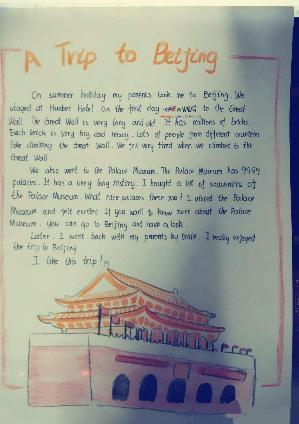 A Trip to Beijing
On summer holiday my parents took me to Beijing. We
stayed at Huabei Hotel. On the first day to the Great
Wall. The Great Wall is very long and old. It has millions of bricks.
Each brick is very big and heavy. Lots of people from different countries
like climbing the Great Wall. We felt very tired when we climbed to the
Great Wall.
We also went to the Palace Museum. The Palace Museum has 9999
palaces. It has a very long history. I bought a lot of souvenirs of
the Palace Museum. What nice palaces these are! I visited the Palace
Museum and felt excited. If you want to know more about the Palace
Museum, you can go to Beijing and have a look.
Later, I went back with my parents by train. I really enjoyed
the trip to Beijing.
I like this trip!